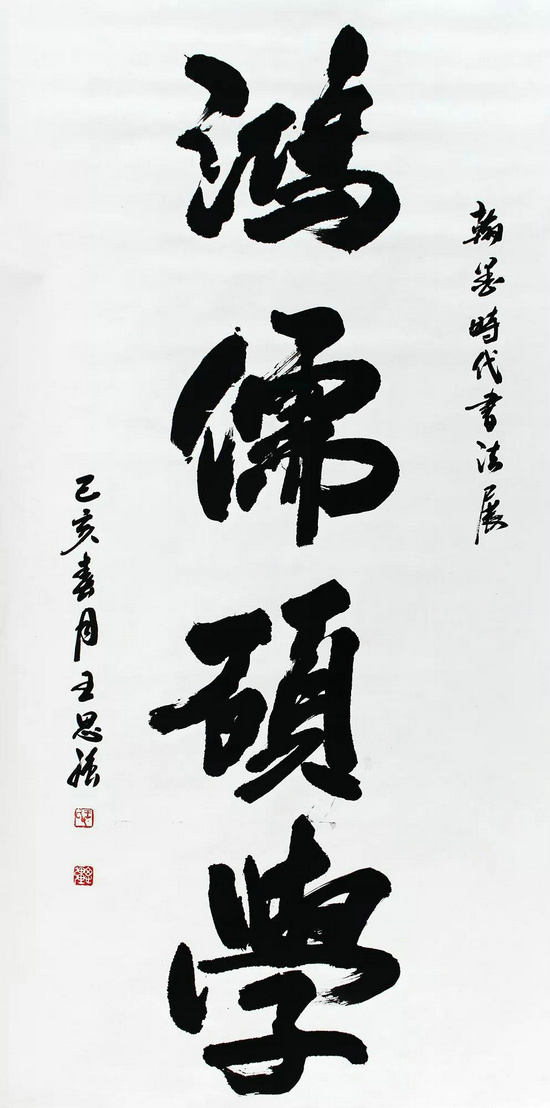 翰墨時代書法展
鴻儒碩學
己亥春月王思強